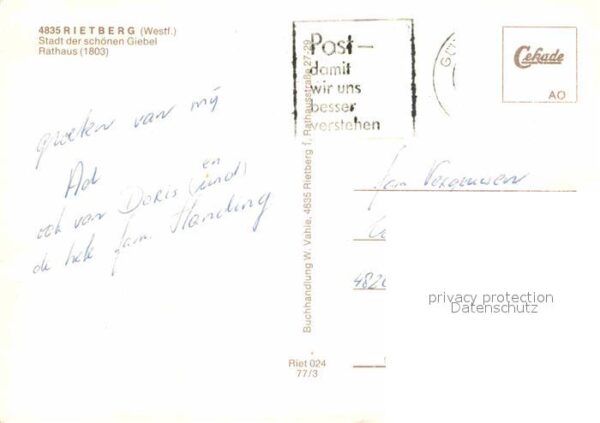 4835 RIETBERG (Westf.)
Stadt der schönen Giebel
Rathaus (1803)
groeten van mij
Ad en
ook van Doris (und)
de hele fam. Handing
Buchhandlung W. Vahle, 4835 Rietberg 1, Rathausstraße 27-29
Riet 024
77/3
Post-
damit
wir uns
besser
verstehen
Cekade
AO
fam Verouwen
482
privacy protection
Datenschutz